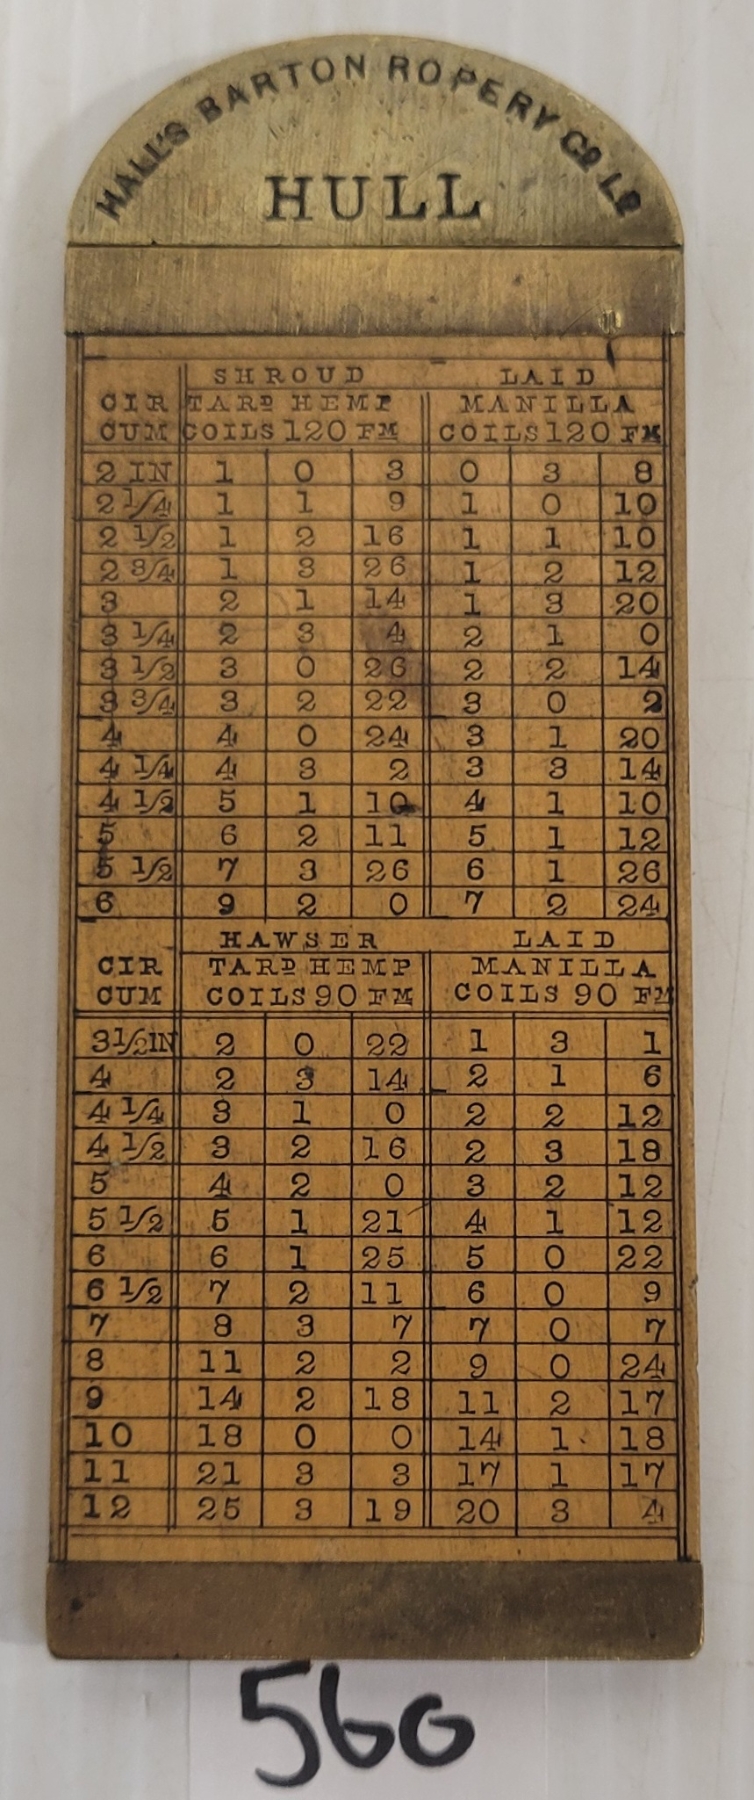 HALL'S BARTON ROPERY Co LD
HULL
SHROUD LAID
CIR TARD HEMP MANILLA
CUM COILS 120 FM COILS 120 FM
2 IN 1 0 3 0 3 8
2 1/4 1 1 9 1 0 10
2 1/2 1 2 16 1 1 10
2 3/4 1 3 26 1 2 12
3 2 1 14 1 3 20
3 1/4 2 3 4 2 1 0
3 1/2 3 0 26 2 2 14
3 3/4 3 2 22 3 0 2
4 4 0 24 3 1 20
4 1/4 4 3 2 3 3 14
4 1/2 5 1 10 4 1 10
5 6 2 11 5 1 12
5 1/2 7 3 26 6 1 26
6 9 2 0 7 2 24
HAWSER LAID
CIR TARD HEMP MANILLA
CUM COILS 90 FM COILS 90 FM
3 1/2 IN 2 0 22 1 3 1
4 2 3 14 2 1 6
4 1/4 3 1 0 2 2 12
4 1/2 3 2 16 2 3 18
5 4 2 0 3 2 12
5 1/2 5 1 21 4 1 12
6 6 1 25 5 0 22
6 1/2 7 2 11 6 0 9
7 8 3 7 7 0 7
8 11 2 2 9 0 24
9 14 2 18 11 2 17
10 18 0 0 14 1 18
11 21 3 3 17 1 17
12 25 3 19 20 3 4
560